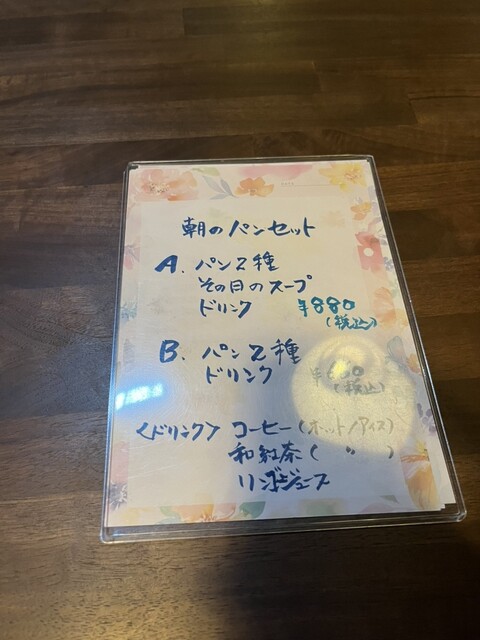 朝のパンセット
A. パン2種
その日のスープ
ドリンク ¥880
(税込)
B. パン2種
ドリンク
(税込)
<ドリンク> コーヒー(ホット/アイス)
和紅茶( 〃 )
リンゴジュース